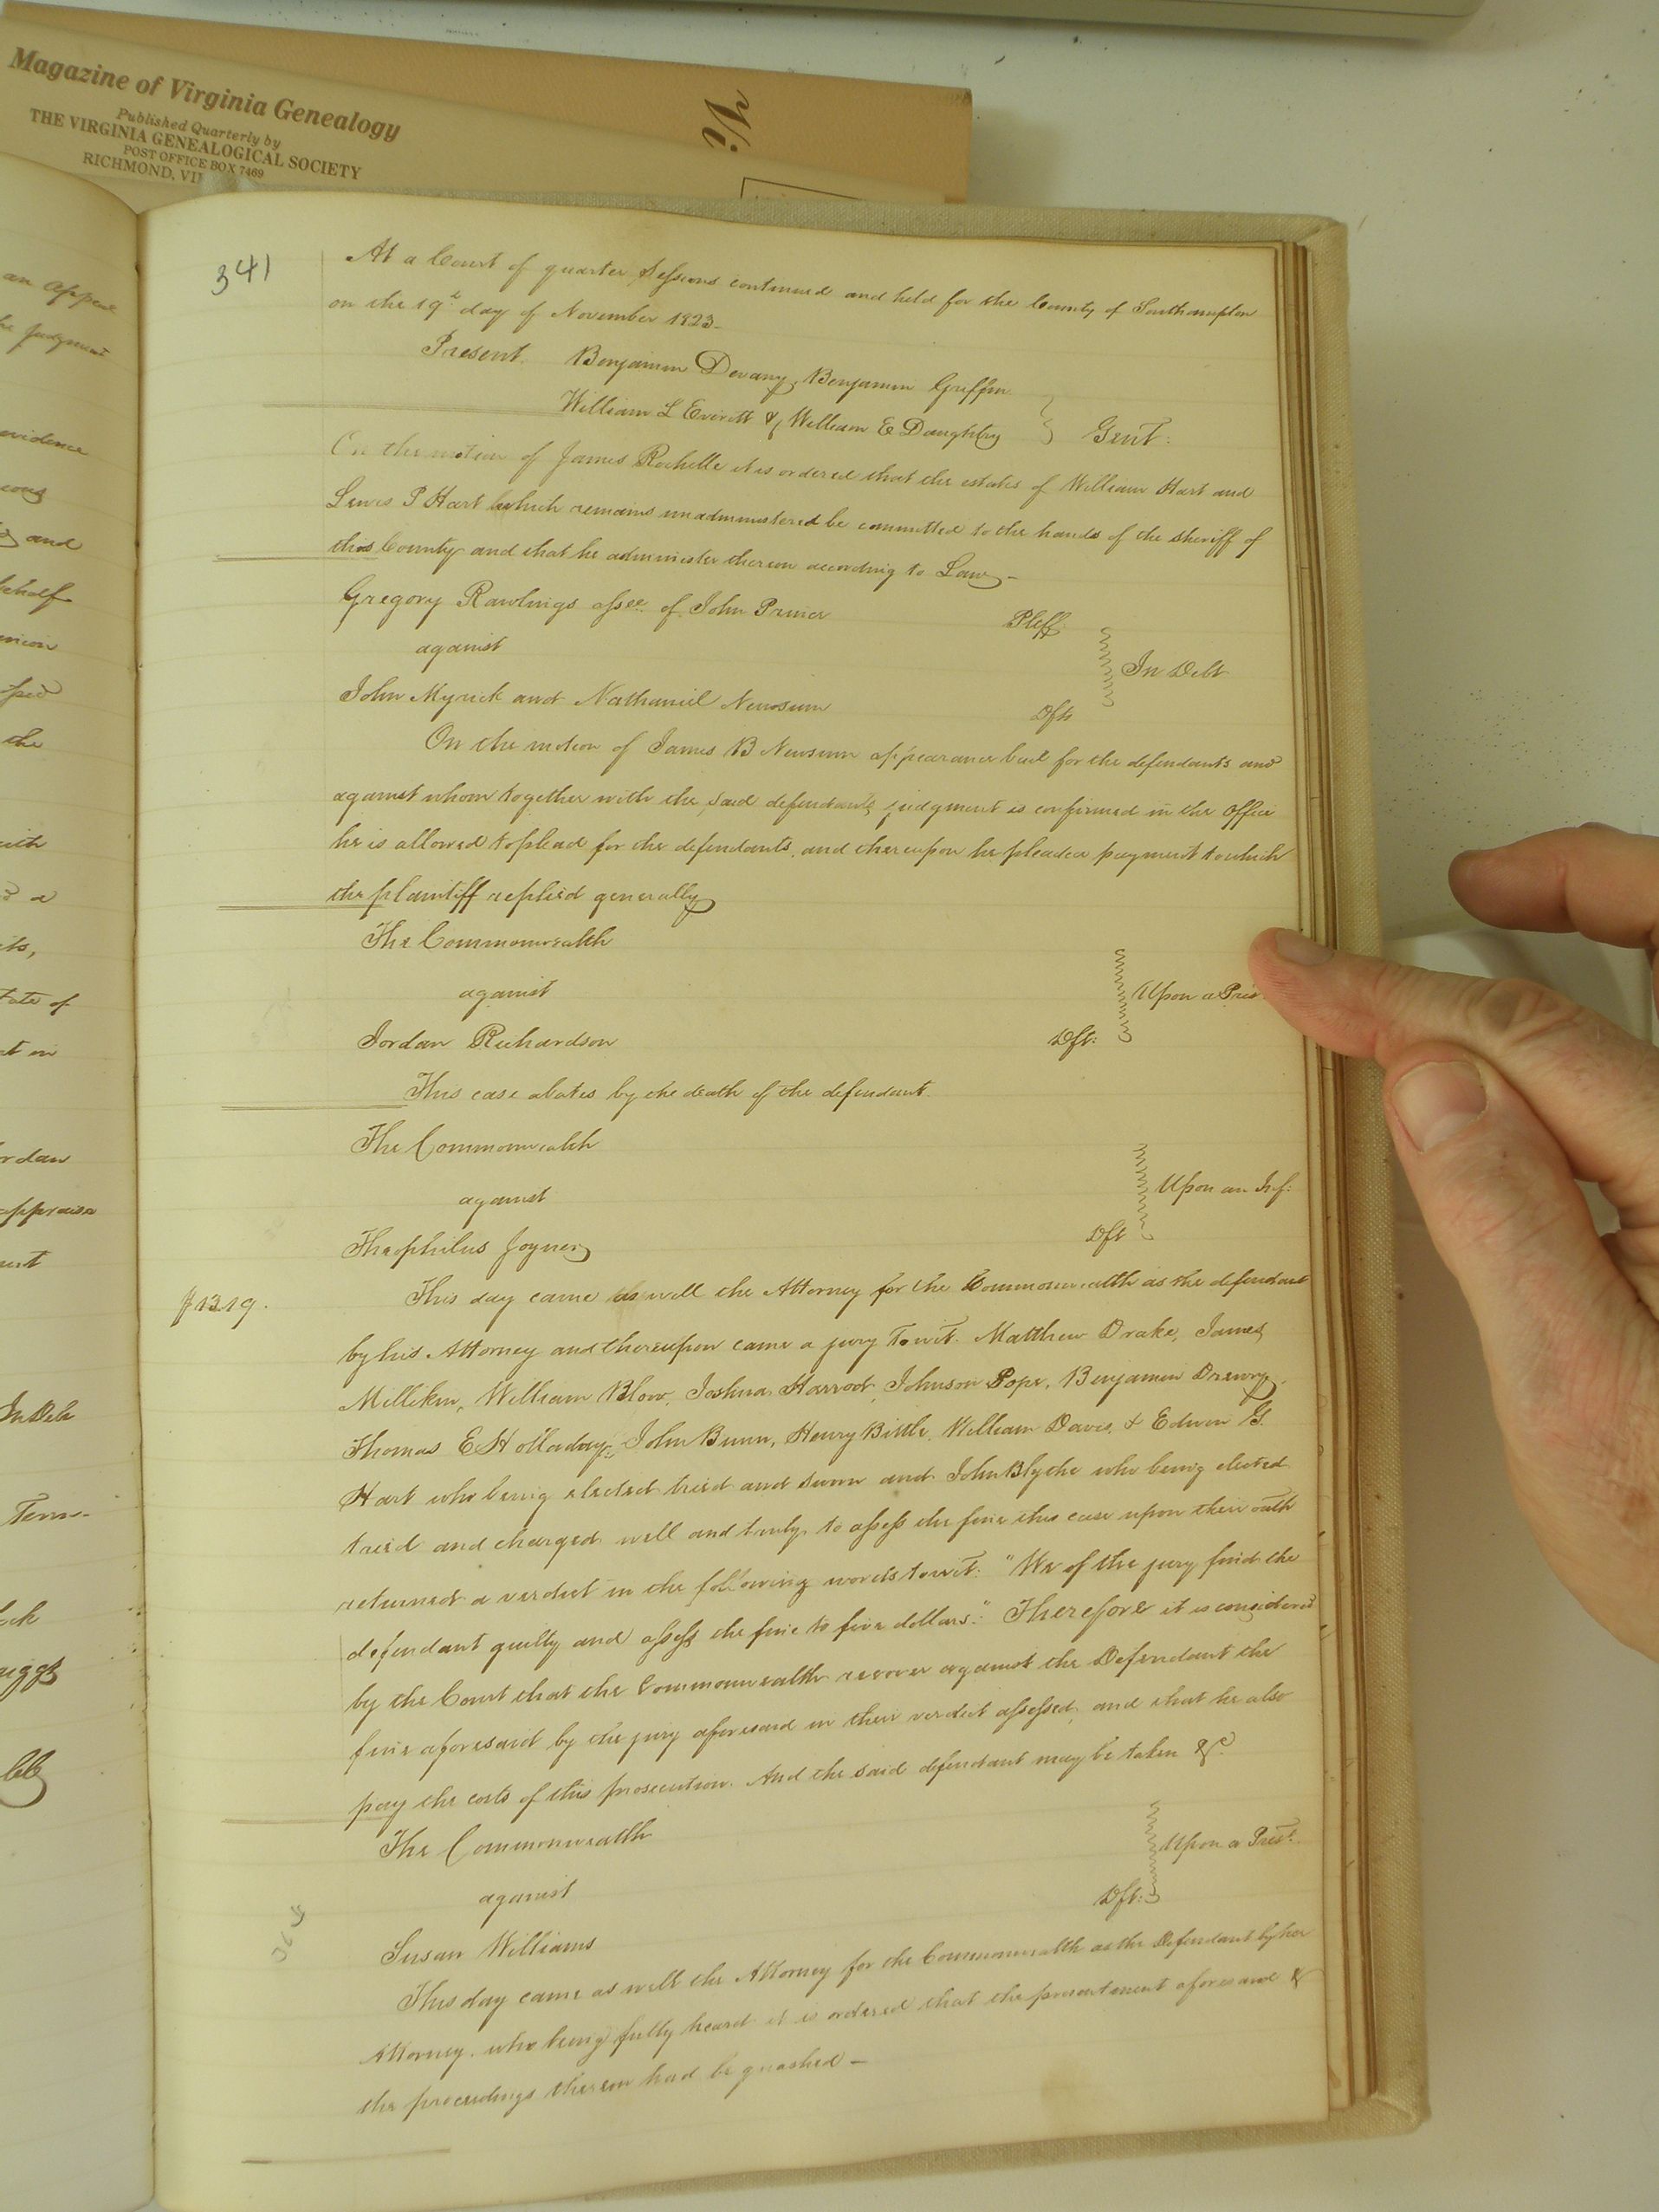 Magazine of Virginia Genealogy
Published Quarterly by
THE VIRGINIA GENEALOGICAL SOCIETY
POST OFFICE BOX 7469
RICHMOND, VI
Vi
an appeal
he judgment
evidence
and
behalf
the
with
State of
rdan
appraise
In Debt
Term-
341
At a Court of quarter Sessions continued and held for the County of Southampton
on the 19th day of November 1823-
Present. Benjamin Devany, Benjamin Griffin
William L Everett & William E Daughtry } Gent:
On the motion of James Rochelle it is ordered that the estates of William Hart and
Lewis P Hart which remains unadministered be committed to the hands of the sheriff of
this County and that he administer thereon according to Law-
Gregory Rawlings assee of John Prince Pltff
against } In Debt
John Myrick and Nathaniel Newsum Dfts
On the motion of James B Newsum appearance bail for the defendants and
against whom together with the said defendants judgment is confirmed in the office
he is allowed to plead for the defendants, and thereupon he pleaded payment to which
the plaintiff replied generally
The Commonwealth
against } Upon a Pres
Jordan Richardson Dft:
This case abates by the death of the defendant.
The Commonwealth
against } Upon an Inf:
Theophilus Joyner Dft
$13.19.
This day came as well the Attorney for the Commonwealth as the defendant
by his Attorney and thereupon came a jury Towit. Matthew Drake, James
Milliken, William Blow, Joshua Harrod, Johnson Pope, Benjamin Drewry,
Thomas E Holladay, John Bunn, Henry Bittle, William Davis, & Edwin G.
Hart who being elected tried and sworn and John Blythe who being elected
tried and charged well and truly to assess the fine this case upon their oath
returned a verdict in the following words towit: "We of the jury find the
defendant guilty and assess the fine to five dollars." Therefore it is considered
by the Court that the Commonwealth recover against the Defendant the
fine aforesaid by the jury aforesaid in their verdict assessed, and that he also
pay the costs of this prosecution. And the said defendant may be taken &c.
The Commonwealth
against } Upon a Prest.
Susan Williams Dft:
This day came as well the Attorney for the Commonwealth as the Defendant by her
Attorney, who being fully heard it is ordered that the presentment aforesaid &
the proceedings thereon had be quashed-